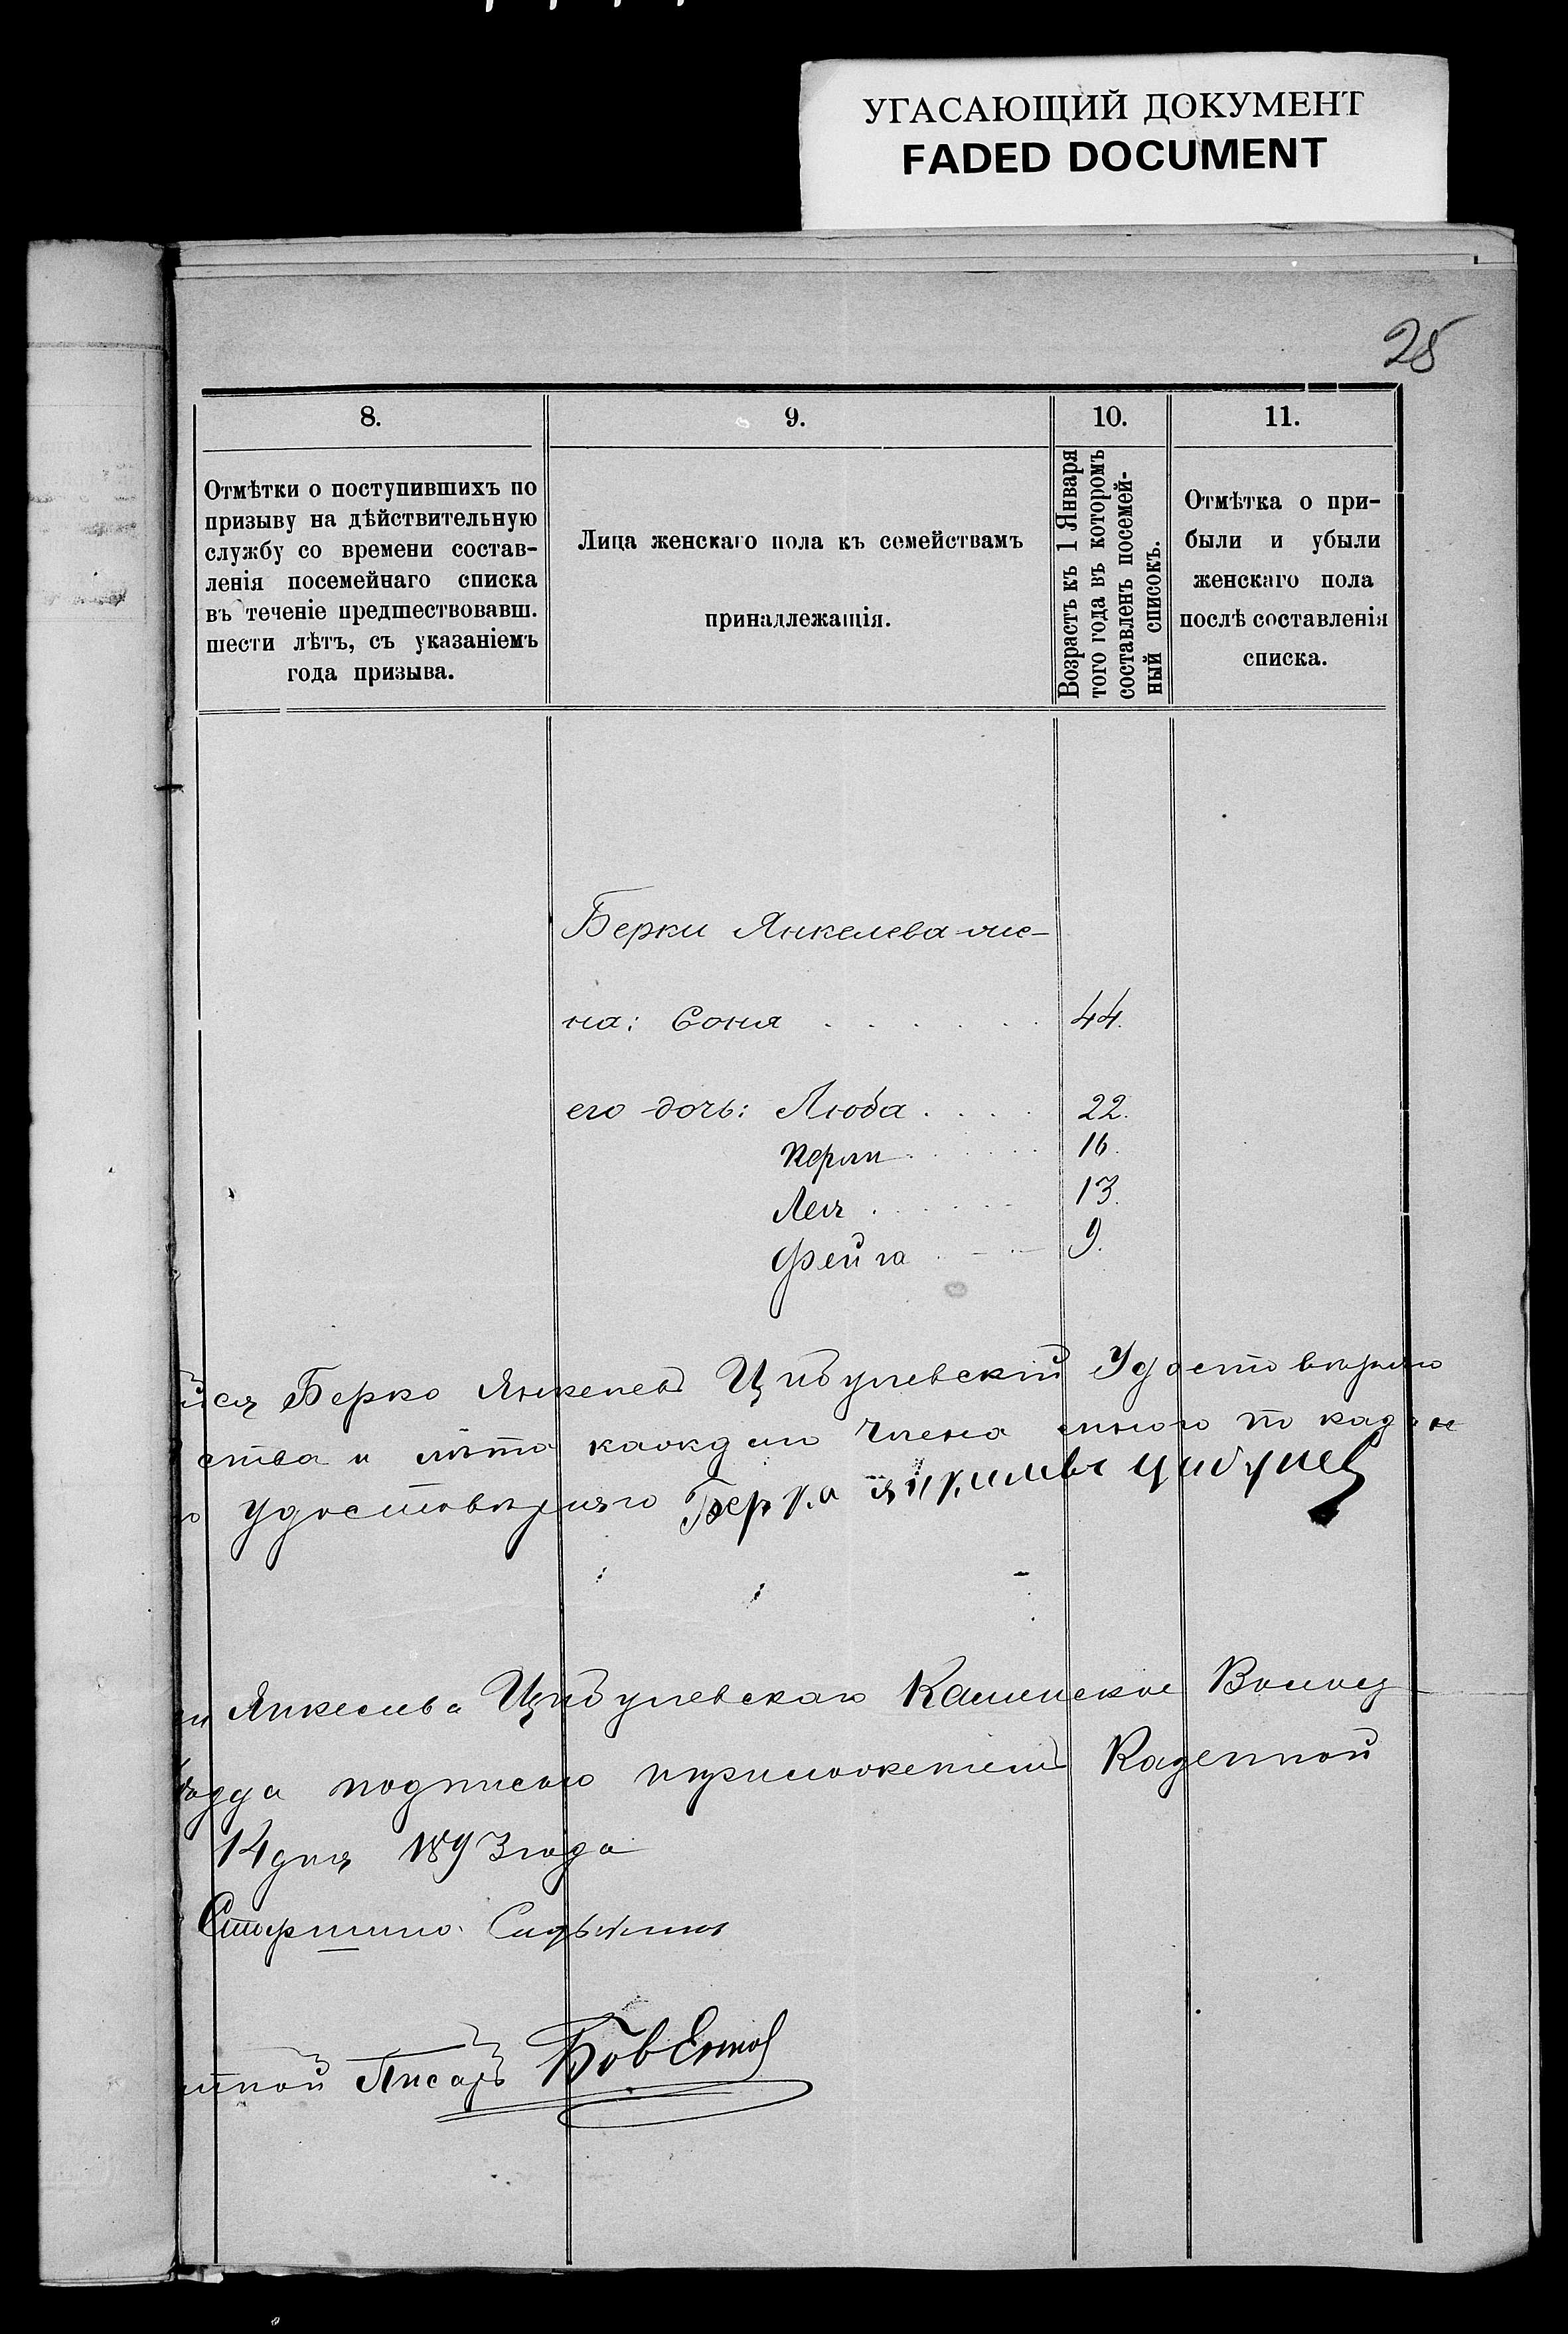 УГАСАЮЩИЙ ДОКУМЕНТ
FADED DOCUMENT
8.
9.
10.
11.
Отмѣтки о поступившихъ по
призыву на дѣйствительную
службу со времени состав-
ленія посемейнаго списка
въ теченіе предшествовавш.
шести лѣтъ, съ указаніемъ
года призыва.
Лица женскаго пола къ семействамъ
принадлежащія.
Возрастъ къ 1 Января
того года въ которомъ
составленъ посемей-
ный списокъ.
Отмѣтка о при-
были и убыли
женскаго пола
послѣ составленія
списка.
Берки Янкелева же-
на: Соня 44.
его дочь: Люба 22.
Перли 16.
Лея 13.
Фейга 9.
Берко Янкелевъ Цибулевскій Удостовѣряю
ства и лѣта каждаго члена
удостовѣряю Берко Цибулев
Янкелева Цибулевскаго Каменское Волост
подписью приложеніемъ Казенной
14 дня 1893 года
Старшина
Писарь